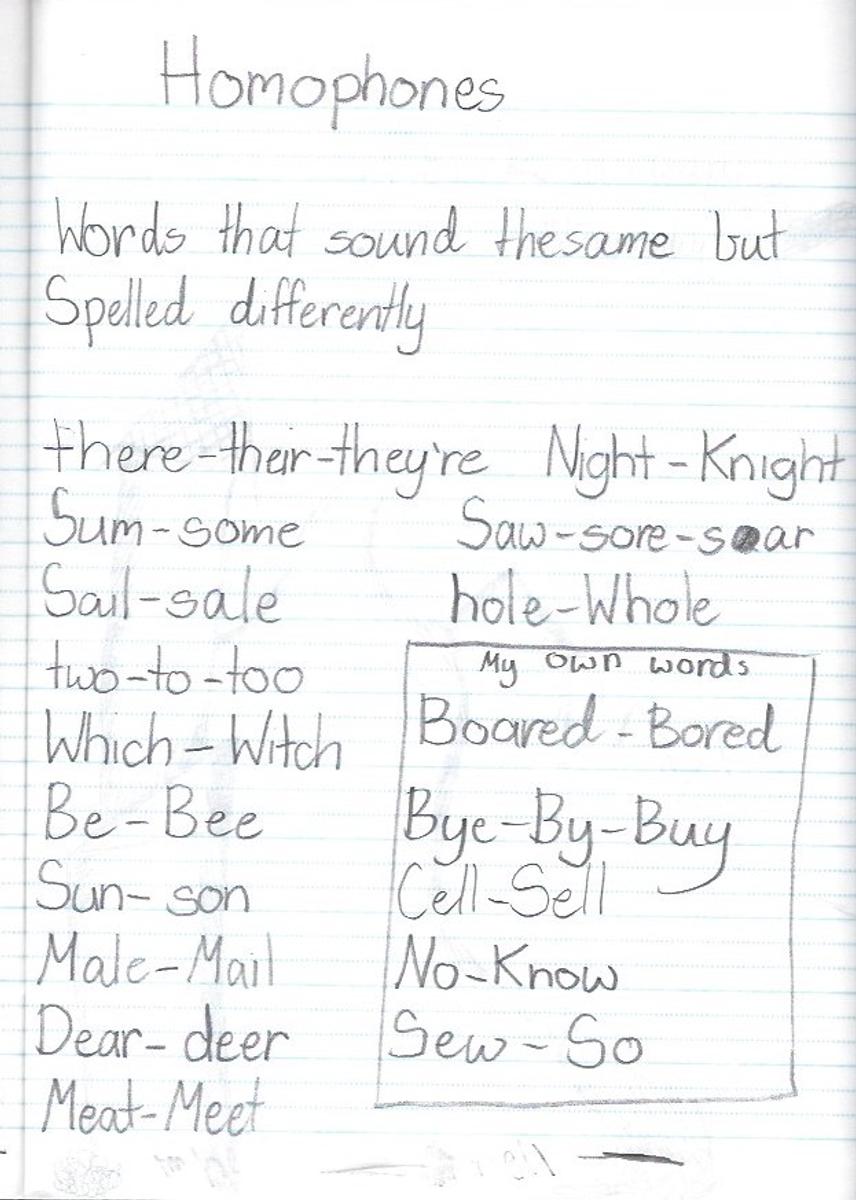 Homophones
Words that sound thesame but
Spelled differently
there-their-they're Night-Knight
Sum-some Saw-sore-soar
Sail-sale hole-Whole
two-to-too
Which-Witch
Be-Bee
Sun-son
Male-Mail
Dear-deer
Meat-Meet
My own words
Boared-Bored
Bye-By-Buy
Cell-Sell
No-Know
Sew-So